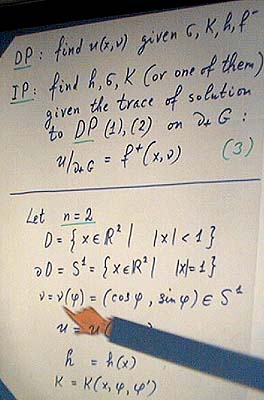 DP : find u(x,ν) given σ, K, h, f⁻
IP : find h, σ, K (or one of them)
given the trace of solution
to DP (1), (2) on ∂₊G :
u|∂₊G = f⁺(x,ν) (3)
Let n=2
D = {x∈R² | |x|<1}
∂D = S¹ = {x∈R² | |x|=1}
ν = ν(φ) = (cos φ, sin φ) ∈ S¹
u = u(
h = h(x)
K = K(x, φ, φ')